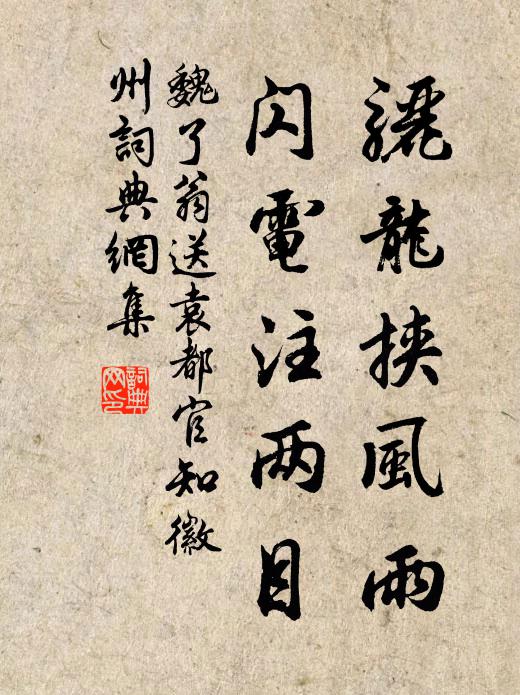 驪龍挾風雨
閃電注两目
魏了翁送袁都官知徽
州詞典網集
詞典網印